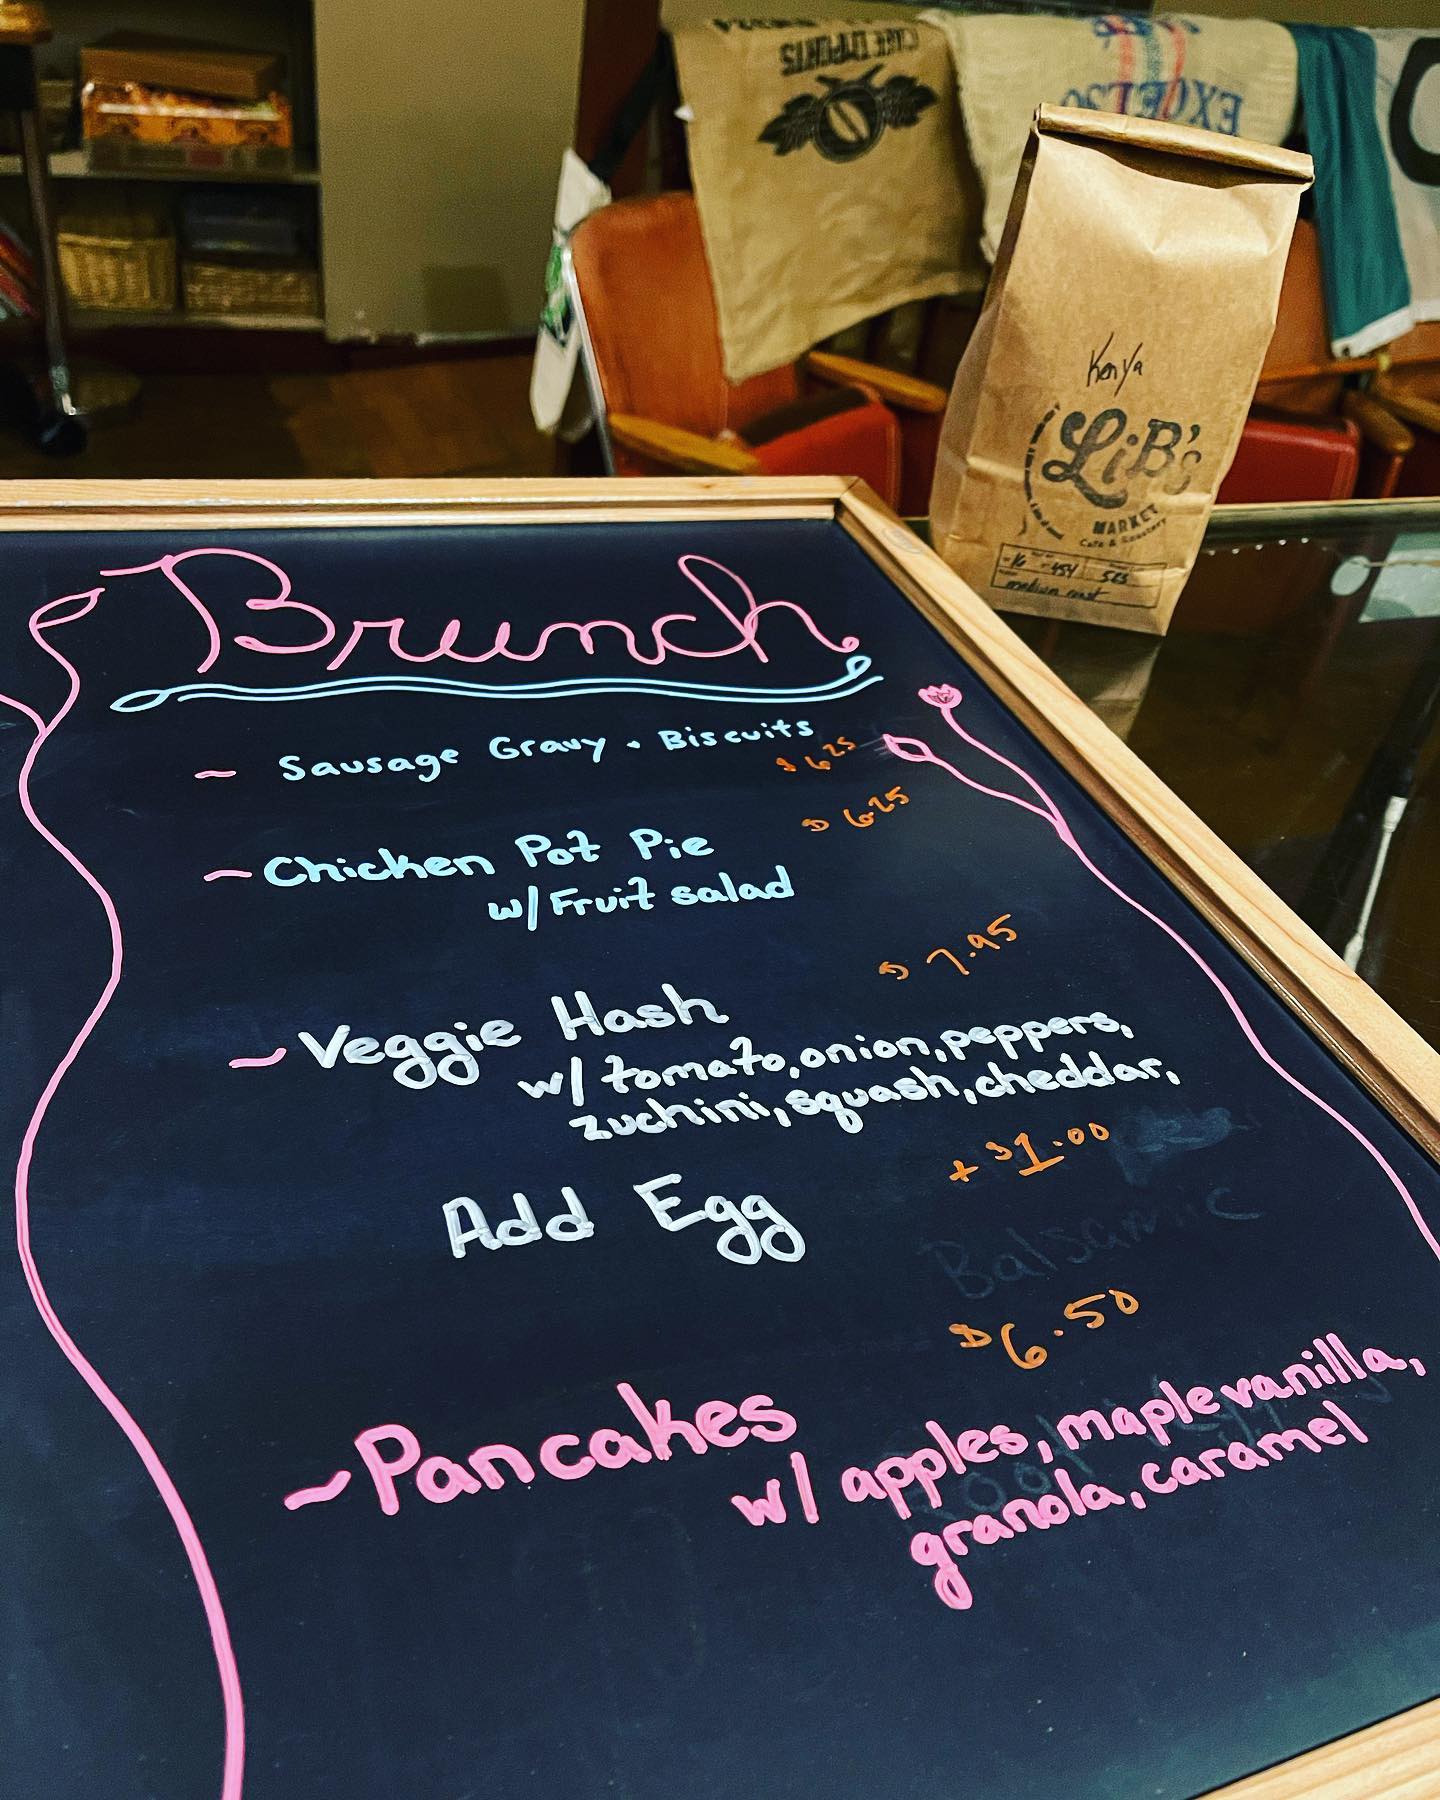 CAFE IMPORTS
EXCELSO
Kenya
LiB's
MARKET
Cafe & Roastery
16 454 565
medium roast
Brunch
~ Sausage Gravy + Biscuits
$6.25
~ Chicken Pot Pie $6.25
w/Fruit salad
~ Veggie Hash $7.95
w/ tomato, onion, peppers,
zuchini, squash, cheddar,
Add Egg + $1.00
Balsamic
$6.50
~ Pancakes
w/ apples, maple vanilla,
granola, caramel